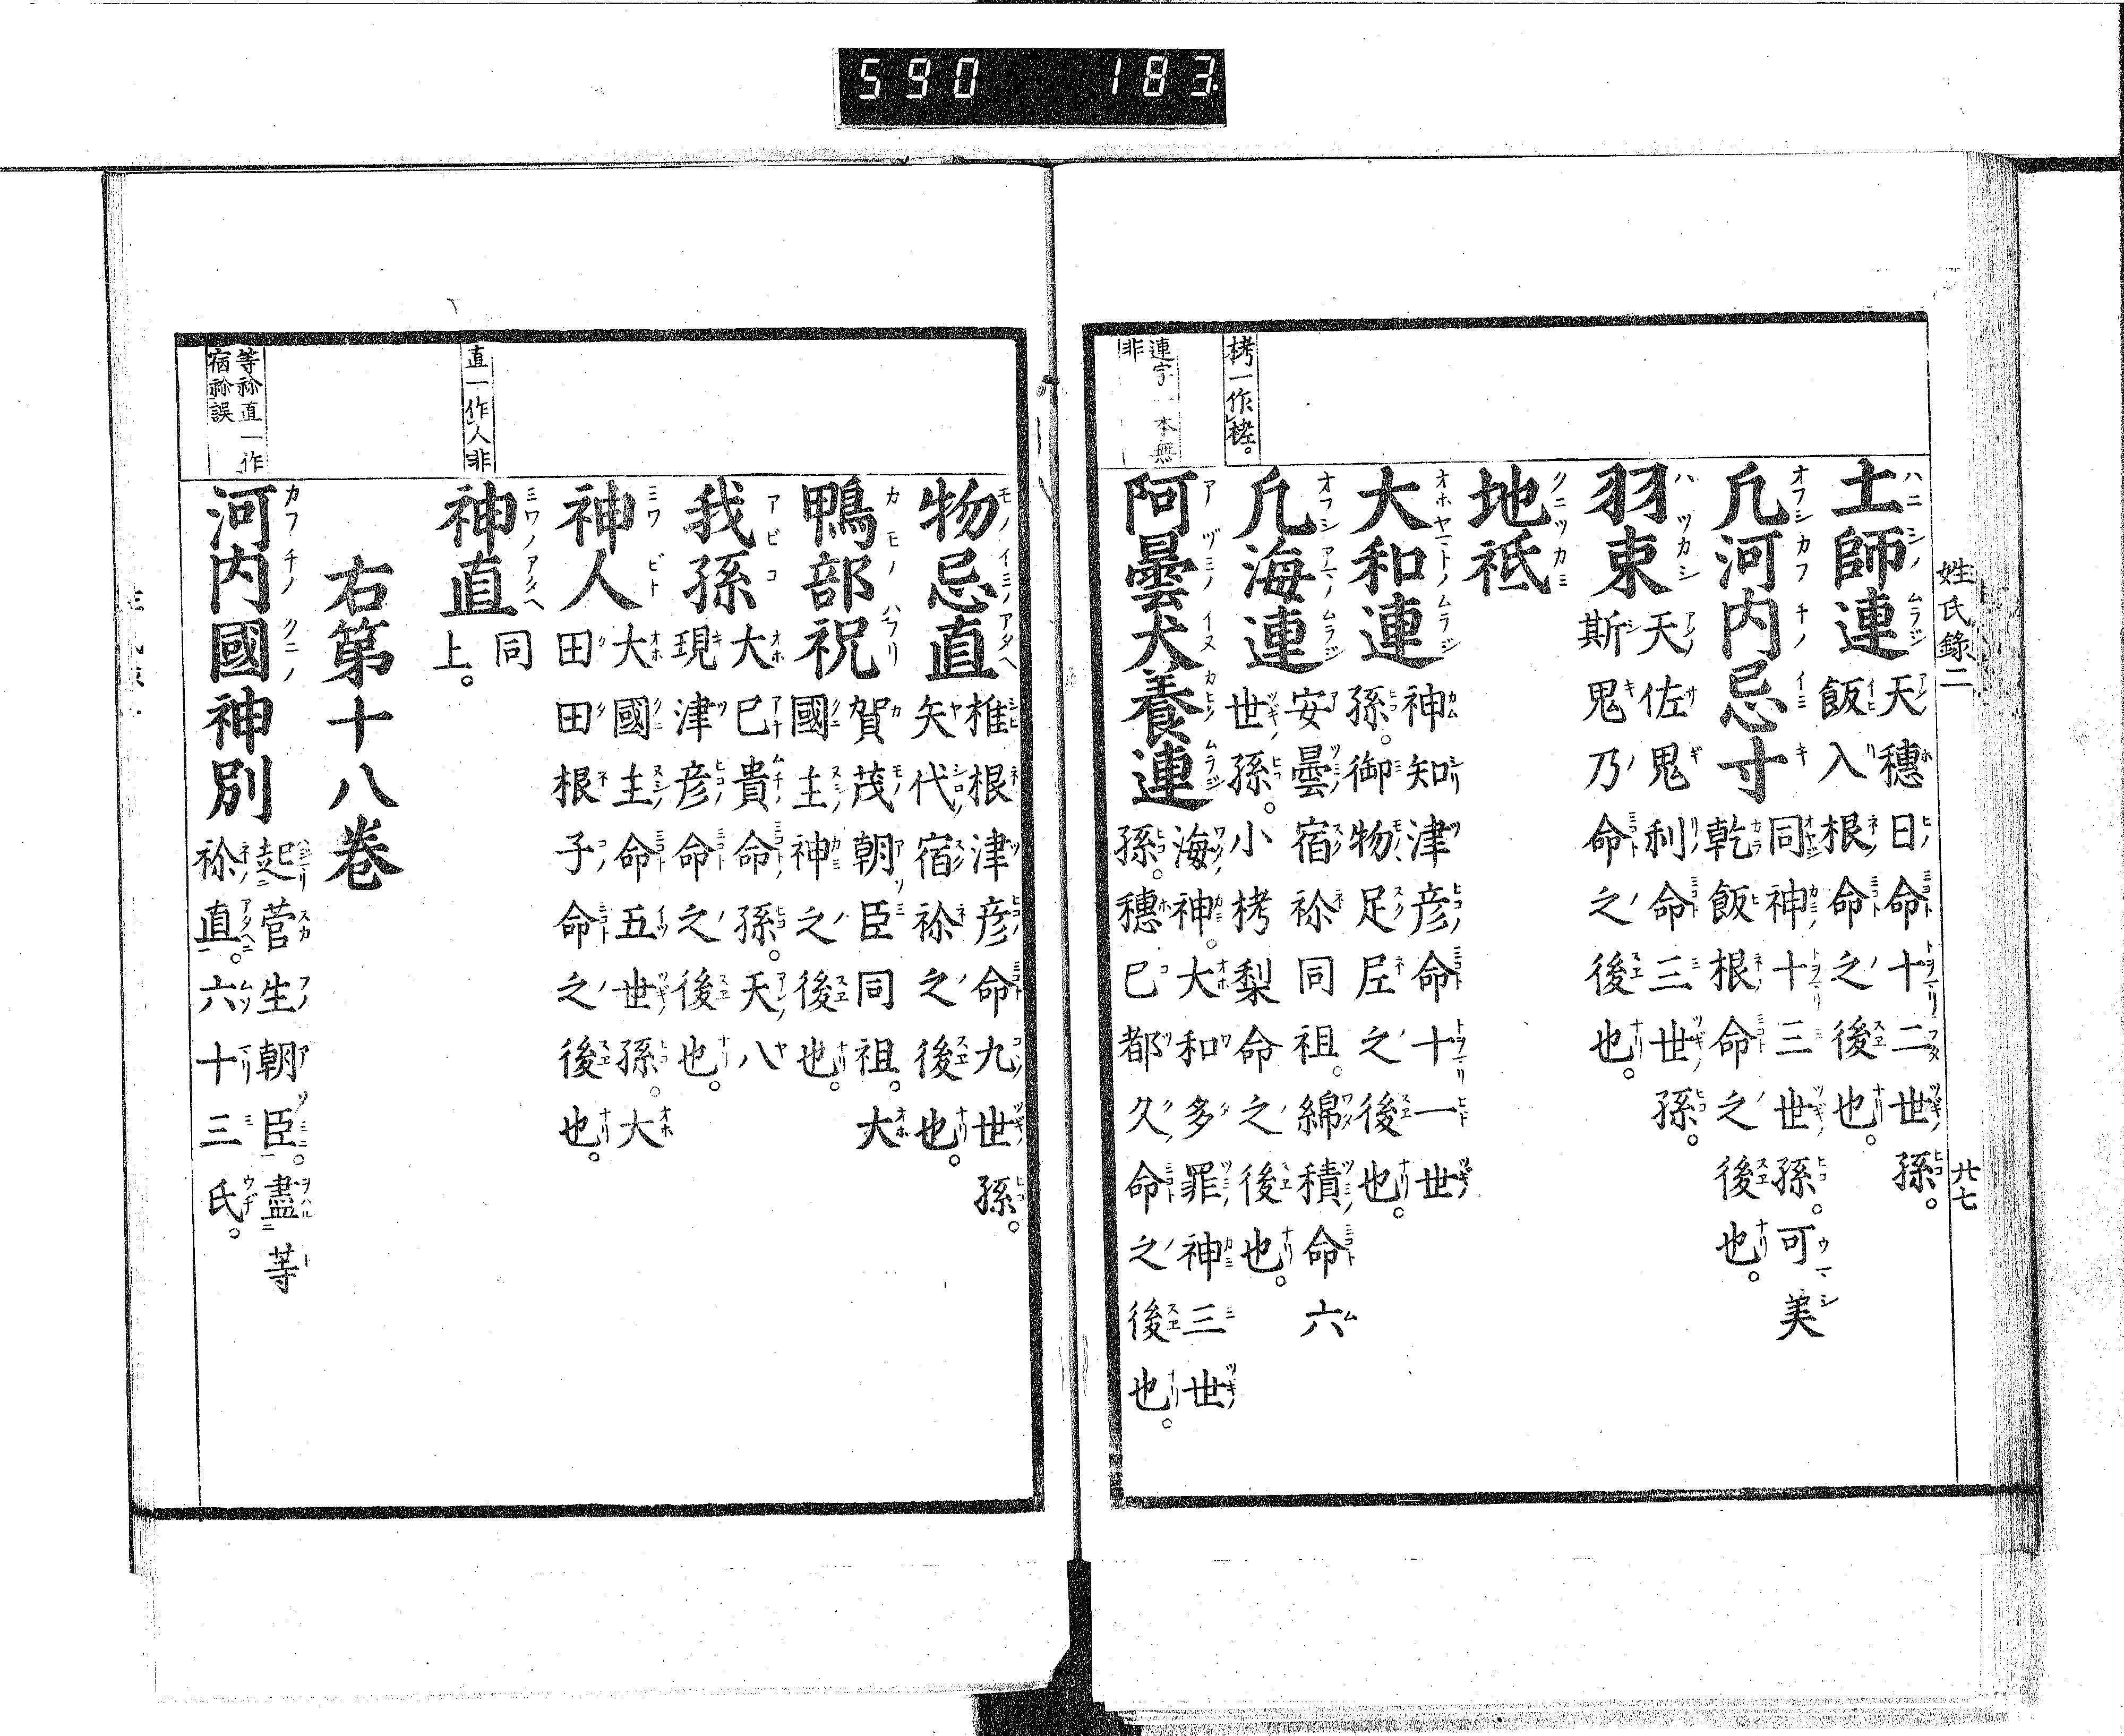 590 183
姓氏録二 廿七
栲一作𣑥。
連字一本無
非
土師連 天穗日命十二世孫。
飯入根命之後也。
凢河内忌寸 同神十三世孫。可美
乾飯根命之後也。
羽束 天佐鬼利命三世孫。
斯鬼乃命之後也。
地祇
大和連 神知津彦命十一世
孫。御物足尼之後也。
凢海連 安曇宿祢同祖。綿積命六
世孫。小栲梨命之後也。
阿曇犬養連 海神。大和多罪神三世
孫。穗己都久命之後也。
直一作人非
等祢直一作
宿祢誤
物忌直 椎根津彦命九世孫。
矢代宿祢之後也。
鴨部祝 賀茂朝臣同祖。大
國主神之後也。
我孫 大己貴命孫。天八
現津彦命之後也。
神人 大國主命五世孫。大
田田根子命之後也。
神直 同
上。
右第十八巻
河内國神別 起菅生朝臣。盡等
祢直。六十三氏。